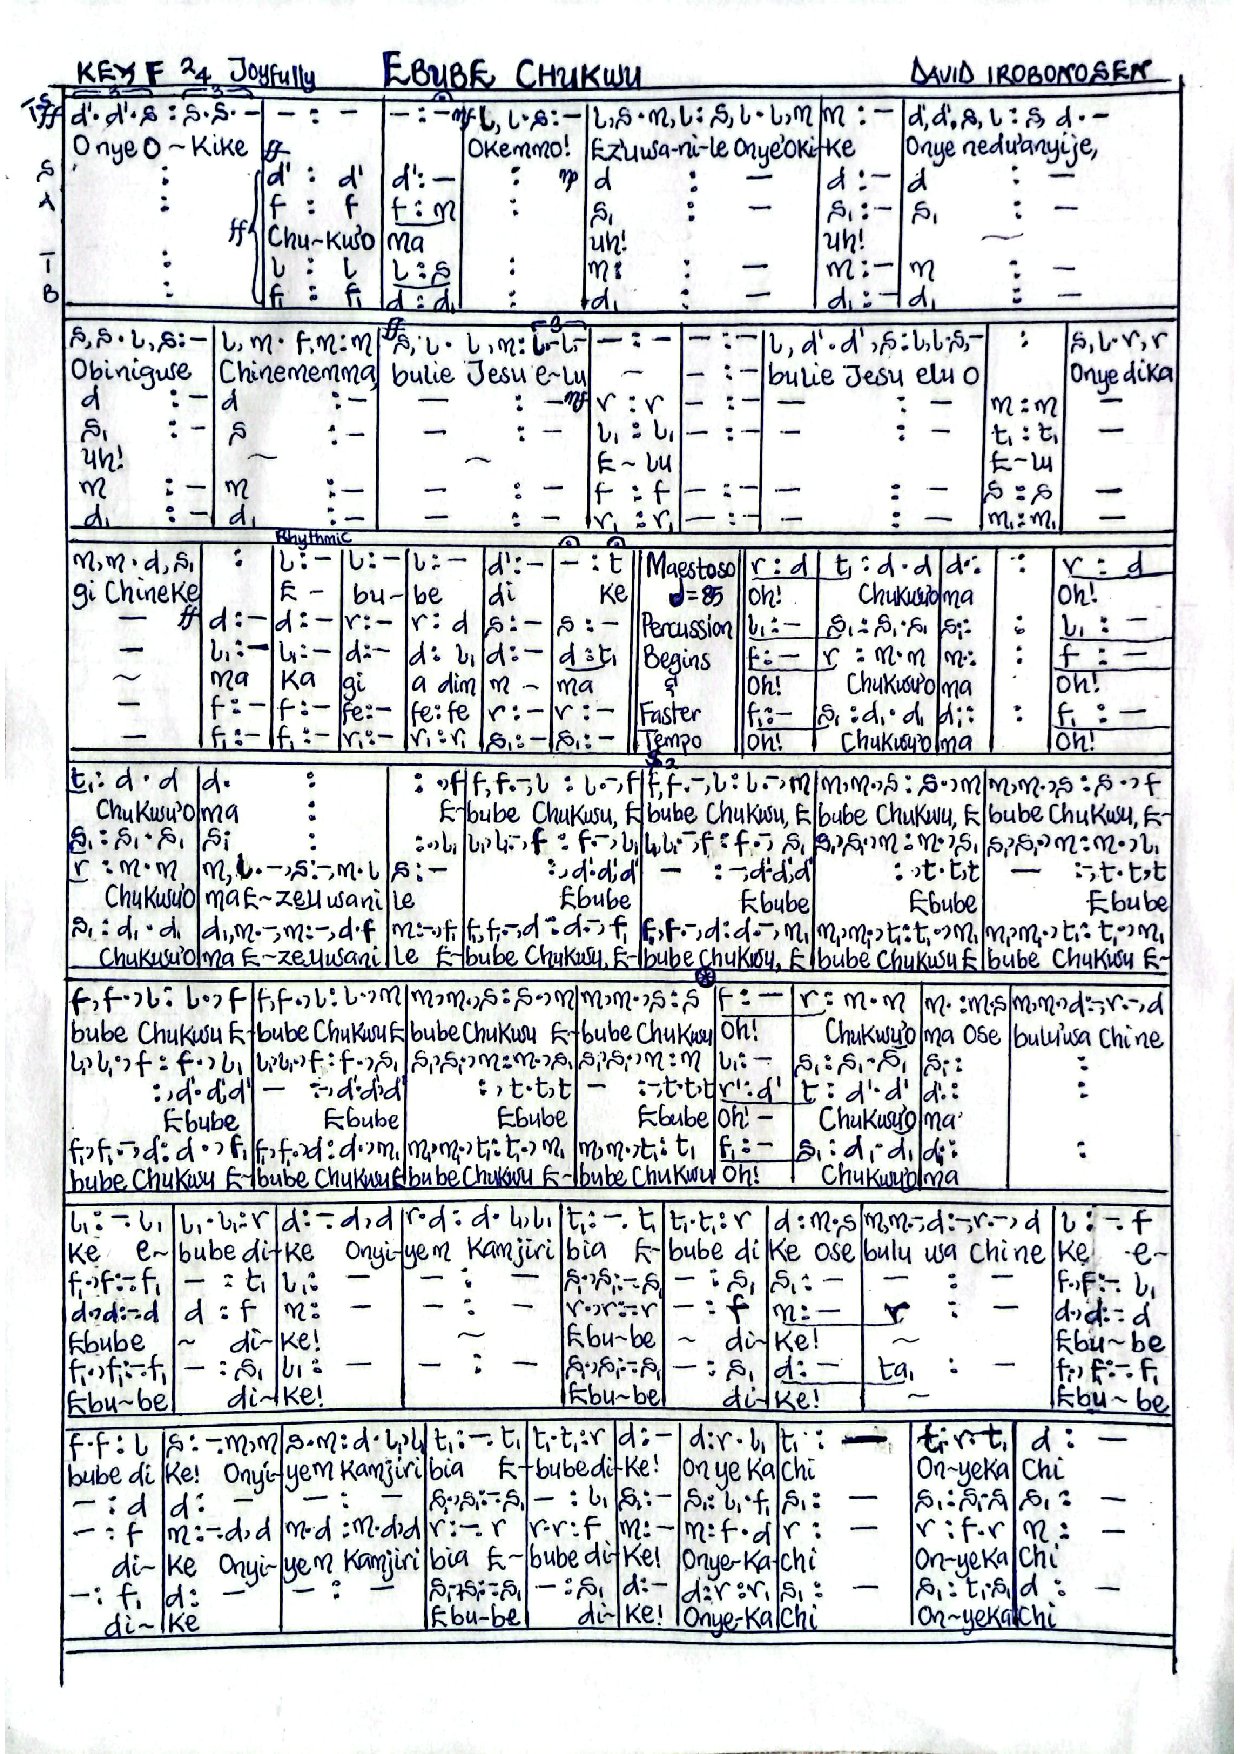 KEY F 2/4 Joyfully EBUBE CHUKWU DAVID IROBONOSEN
d'. d'. s : s. s. – | – : – | – : – mf l, l. s : – | l, s. m, l : s, l. l, m | m : – | d', d', s, l : s, d. –
Onye O ~ Kike ff OKemmo! Ezuwa-ni-le Onye'OKi-Ke Onye nedu'anyije,
S : | d' : d' | d' : – | : mp | d : – | d : – | d : –
A : | f : f | f : m | : | s₁ : – | s₁ : – | s₁ : –
ff Chu~Kwu'o ma uh! uh! ~
T : | l : l | l : s | : | m : – | m : – | m : –
B : | f₁ : f₁ | d : d₁ | : | d₁ : – | d₁ : – | d₁ : –
s, s. l, s : – | l, m. f, m : m | s, l. l, m : l. l. – | – : – | – : – | l, d'. d', s : l, l. s, – | : | s, l. r, r
Obiniguse Chinememma, bulie Jesu e~lu ~ – : – bulie Jesu elu o Onye dika
d : – | d : – | – : – mf | r : r | – : – | – : – | m : m | –
s₁ : – | s : – | – : – | l₁ : l₁ | – : – | – : – | t₁ : t₁ | –
uh! ~ ~ E ~ lu E~lu
m : – | m : – | – : – | f : f | – : – | – : – | s : s | –
d₁ : – | d₁ : – | – : – | r₁ : r₁ | – : – | – : – | m₁ : m₁ | –
Rhythmic
m, m. d, s₁ | : | l : – | l : – | l : – | d' : – | – : t | Maestoso | r : d | t₁ : d. d | d. : | : | r : d
gi Chineke E – bu~be di Ke ♩=85 Oh! Chukwu'o ma Oh!
– ff | d : – | d : – | r : – | r : d | s : – | s : – | Percussion | l₁ : – | s₁ : s₁. s₁ | s₁ : | : | l₁ : –
– | l₁ : – | l₁ : – | d : – | d : l₁ | d : – | d : t₁ | Begins | f : – | r : m. m | m. : | : | f : –
~ ma Ka gi a dim m ~ ma & Oh! Chukwu'o ma Oh!
– | f : – | f : – | fe : – | fe : fe | r : – | r : – | Faster | f₁ : – | s₁ : d₁. d₁ | d₁ : | : | f₁ : –
– | f₁ : – | f₁ : – | r₁ : – | r₁ : r₁ | s₁ : – | s₁ : – | Tempo Oh! Chukwu'o ma Oh!
t₁ : d. d | d. : | : ., f | f, f. –, l : l. –, f | f, f. –, l : l. –, m | m, m., s : s., m | m, m., s : s., f
Chukwu'o ma E- bube Chukwu, E bube Chukwu, E bube Chukwu, E bube Chukwu, E-
s₁ : s₁. s₁ | s₁ : | : ., l₁ | l₁, l₁. –, f : f. –, l₁ | l₁, l₁. –, f : f. –, s₁ | s₁, s₁., m : m., s₁ | s₁, s₁., m : m., l₁
r : m. m | m, l. –, s : –, m. l | s : – | : , d'. d', d' | – : –, d'. d', d' | : , t. t, t | – : –, t. t, t
Chukwu'o ma E~zeuwani le Ebube Ebube Ebube Ebube
s₁ : d₁. d₁ | d₁, m. –, m : –, d. f | m : –., f₁ | f₁, f₁. –, d : d. –, f₁ | f₁, f₁. –, d : d. –, m₁ | m₁, m₁., t₁ : t₁., m₁ | m₁, m₁., t₁ : t₁., m₁
Chukwu'o ma E~zeuwani le E- bube Chukwu, E- bube Chukwu, E bube Chukwu E bube Chukwu E-
f, f., l : l., f | f, f., l : l., m | m, m., s : s., m | m, m., s : s | f : – | r : m. m | m. : m, s | m, m, d : –, r. –, d
bube Chukwu E- bube Chukwu E bube Chukwu E- bube Chukwu Oh! Chukwu'o ma Ose bulu'uwa Chine
l₁, l₁., f : f., l₁ | l₁, l₁., f : f., s₁ | s₁, s₁., m : m., s₁ | s₁, s₁., m : m | l₁ : – | s₁ : s₁. s₁ | s₁ : | :
: , d'. d', d' | – : –, d'. d', d' | : , t. t, t | – : –, t. t, t | r' : d' | t : d'. d' | d' : | :
Ebube Ebube Ebube Ebube Oh! – Chukwu'o ma
f₁, f₁. –, d : d., f₁ | f₁, f₁., d : d., m₁ | m₁, m₁., t₁ : t₁., m₁ | m₁, m₁., t₁ : t₁ | f₁ : – | s₁ : d₁. d₁ | d₁ : | :
bube Chukwu E- bube Chukwu E bube Chukwu E- bube Chukwu Oh! Chukwu'o ma
l₁ : –. l₁ | l₁. l₁ : r | d : –. d, d | r. d : d. l₁, l₁ | t₁ : –. t₁ | t₁. t₁ : r | d : m. s | m, m. –, d : –, r. –, d | l : –. f
Ke e~ bube di~ Ke Onyi- yem Kamjiri bia E- bube di Ke Ose bulu wa Chine Ke -e~
f., f : –. f₁ | – : t₁ | l₁ : – | – : – | s₁., s₁ : –. s₁ | – : s₁ | s₁ : – | – : – | f., f : –. l₁
d., d : –. d | d : f | m : – | – : – | r., r : –. r | – : f | m : – | r : – | d., d : –. d
Ebube ~ di~ Ke! ~ Ebu~be ~ di~ Ke! ~ Ebu~be
f₁., f₁ : –. f₁ | – : s₁ | l₁ : – | – : – | s₁., s₁ : –. s₁ | – : s₁ | d : – | ta₁ : – | f₁., f₁ : –. f₁
Ebu~be di~ Ke! Ebu~be di~ Ke! ~ Ebu~be
f. f : l | s : –. m, m | s. m : d. l₁, l₁ | t₁ : –. t₁ | t₁. t₁ : r | d : – | d : r. l₁ | t₁ : – | t₁ : r. t₁ | d : –
bube di Ke! Onyi- yem Kamjiri bia E- bube di- Ke! Onye Ka Chi On~yeKa Chi
– : d | d : – | – : – | s₁., s₁ : –. s₁ | – : l₁ | s₁ : – | s₁ : l₁. f₁ | s₁ : – | s₁ : s. s | s₁ : –
– : f | m : –. d, d | m. d : m. d, d | r : –. r | r. r : f | m : – | m : f. d | r : – | r : f. r | m : –
di~ Ke Onyi- yem Kamjiri bia E~ bube di- Ke! Onye-Ka- chi On~yeKa Chi
– : f₁ | d : – | – : – | s₁., s₁ : –. s₁ | – : s₁ | d : – | d : r : r₁ | s₁ : – | s₁ : t₁. s₁ | d : –
di~ Ke Ebu~be di~ Ke! Onye-Ka Chi On~yeKa Chi